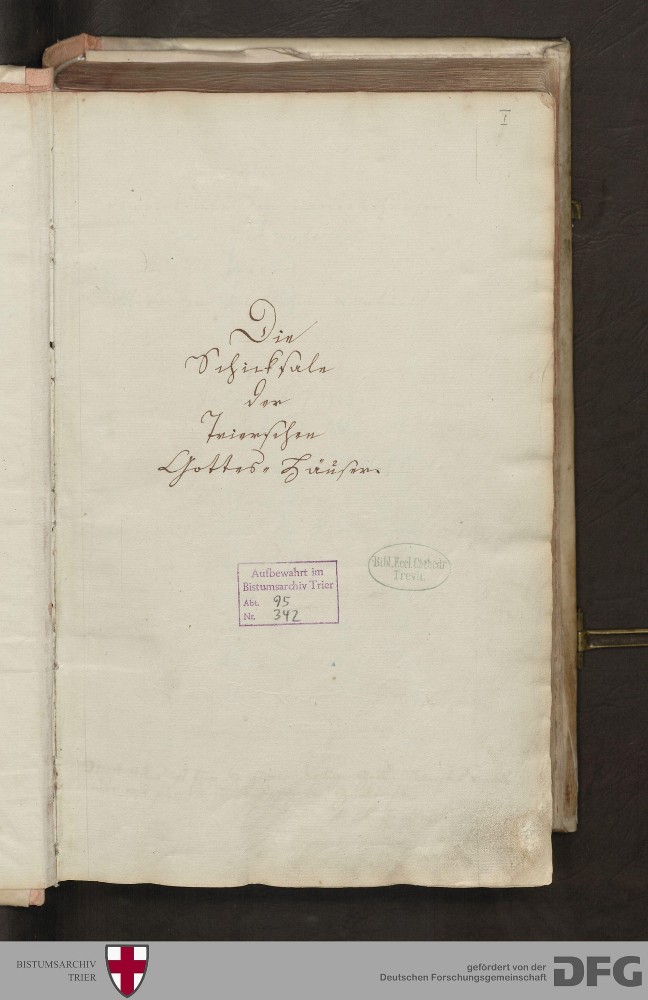 I
Die
Schicksale
der
Trierschen
Gottes-Häuser.
Aufbewahrt im
Bistumsarchiv Trier
Abt. 95
Nr. 342
Bibl. Eccl. Cathedr.
Trevir.
BISTUMSARCHIV
TRIER
gefördert von der
Deutschen Forschungsgemeinschaft
DFG